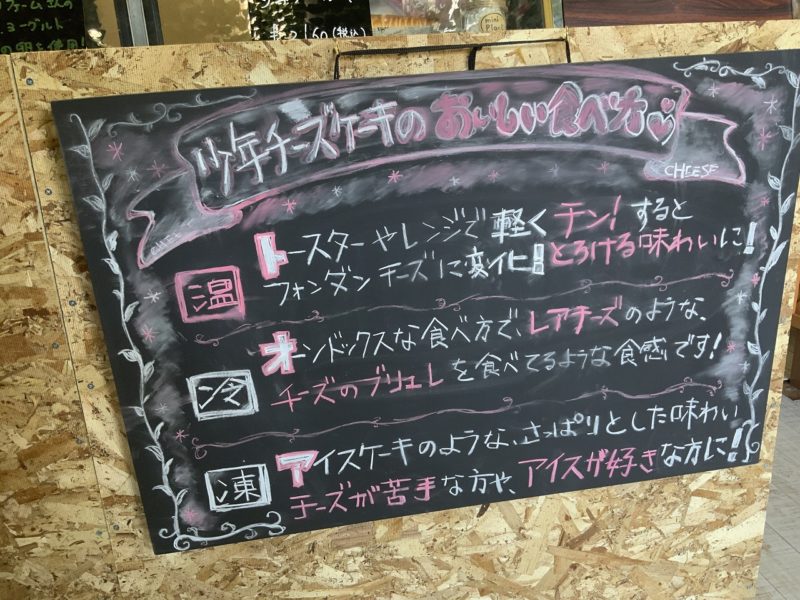 ファームさんの
ヨーグルト
の卵を使用
160(税込)
mini
少年チーズケーキのおいしい食べ方
CHEESE
温
トースターやレンジで軽くチン!すると
フォンダンチーズに変化!とろける味わいに!
冷
オーンドックスな食べ方で、レアチーズのような、
チーズのブリュレを食べてるような食感です!
凍
アイスケーキのような、さっぱりとした味わい
チーズが苦手な方や、アイスが好きな方に!